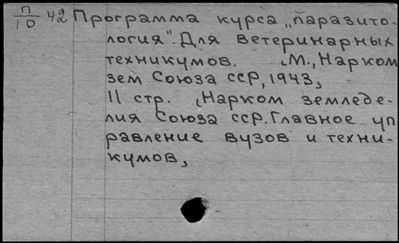 П/10 42 Программа курса „паразито-
логия". Для ветеринарных
техникумов. [М., Нарком
зем Союза ССР, 1943,]
11 стр. [Нарком земледе-
лия Союза ССР. Главное уп
равление вузов и техни-
кумов,]